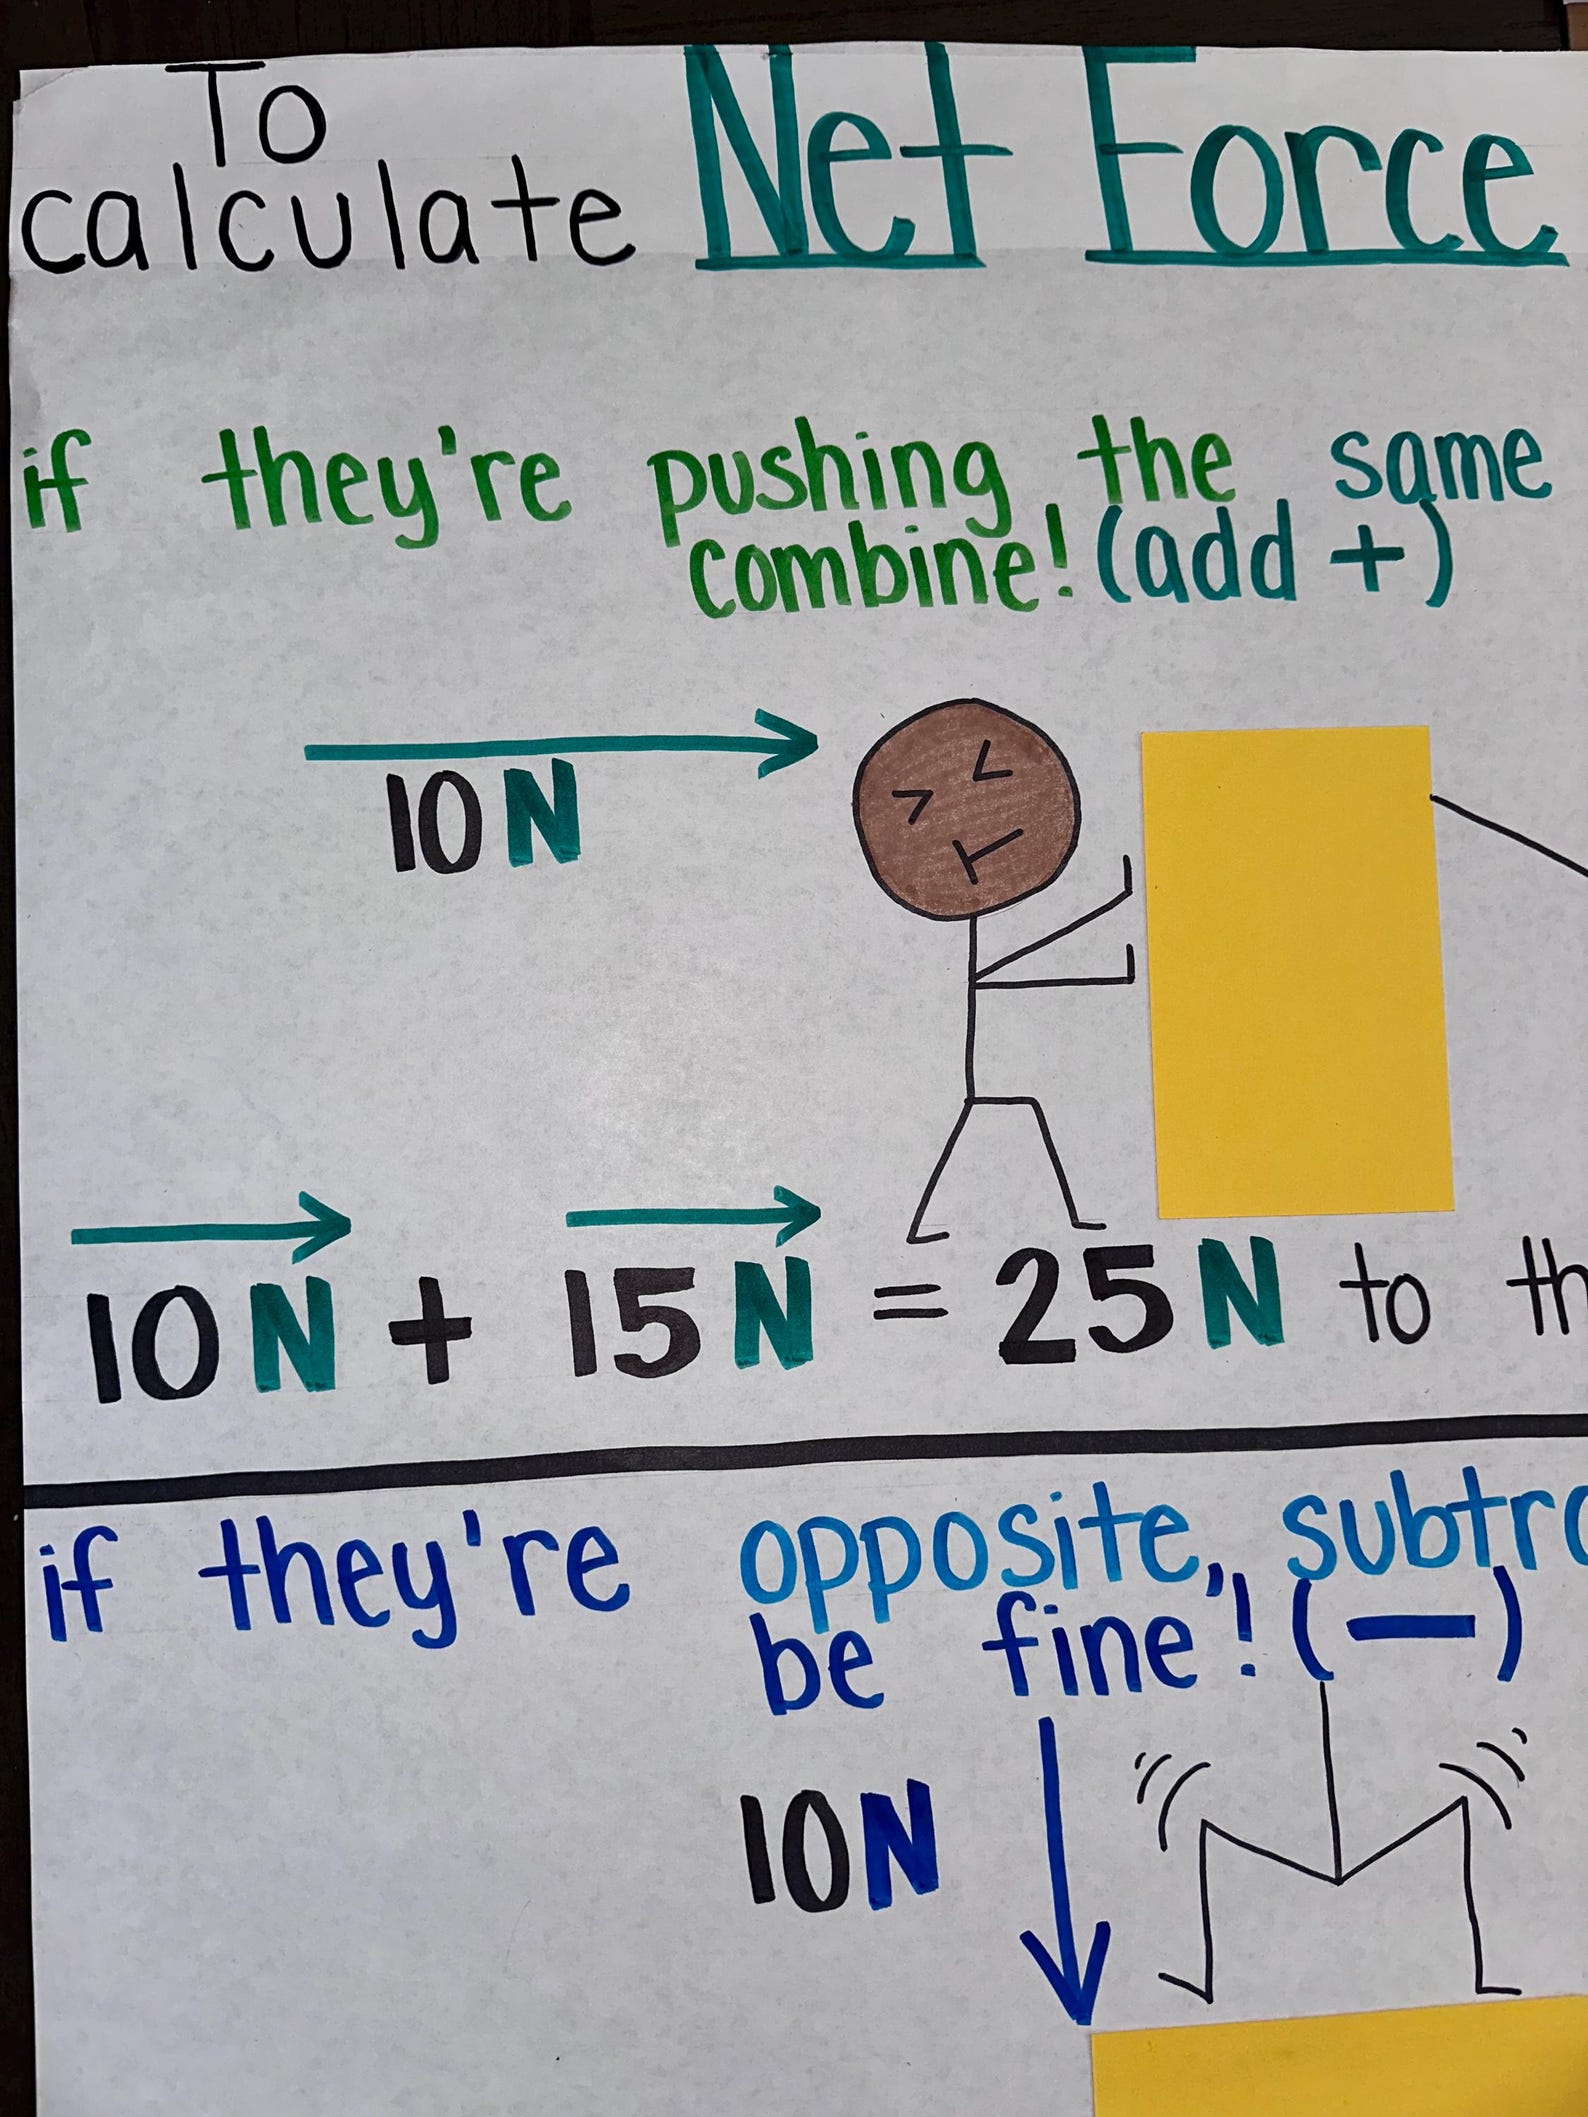 To
calculate Net Force
if they're pushing the same,
combine! (add +)
10N
10N + 15N = 25N to
if they're opposite,
be fine! (—)
10N